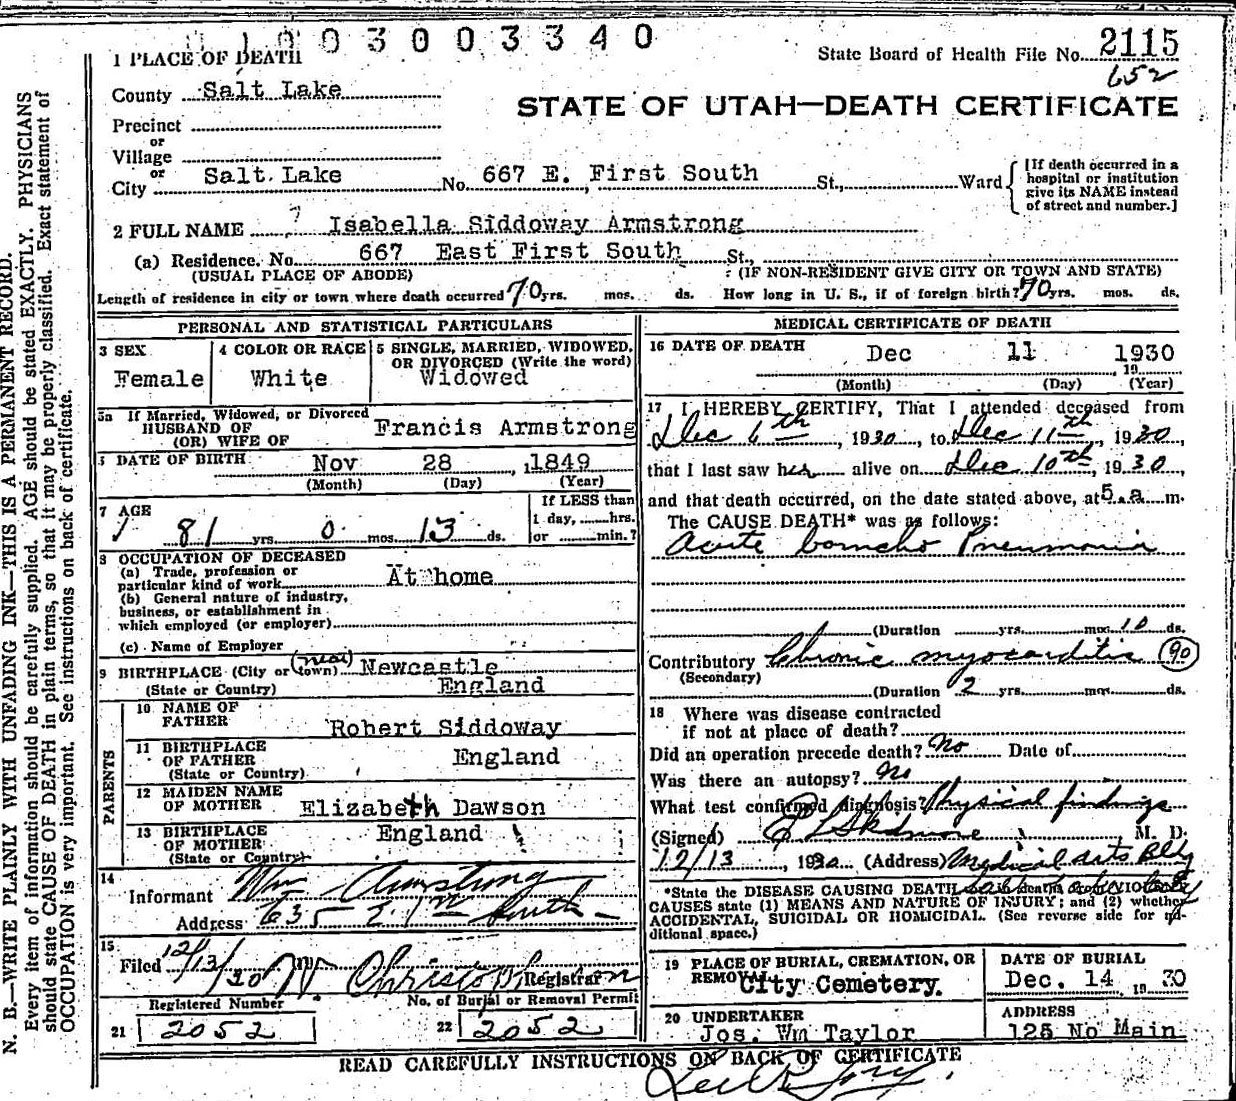 1003003340
State Board of Health File No. 2115
652
1 PLACE OF DEATH
County Salt Lake
STATE OF UTAH—DEATH CERTIFICATE
Precinct
or
Village
or
City Salt Lake No. 667 E. First South St., Ward
[If death occurred in a hospital or institution give its NAME instead of street and number.]
2 FULL NAME Isabella Siddoway Armstrong
(a) Residence. No. 667 East First South St.,
(USUAL PLACE OF ABODE) (IF NON-RESIDENT GIVE CITY OR TOWN AND STATE)
Length of residence in city or town where death occurred 70 yrs. mos. ds. How long in U. S., if of foreign birth? 70 yrs. mos. ds.
PERSONAL AND STATISTICAL PARTICULARS
3 SEX
Female
4 COLOR OR RACE
White
5 SINGLE, MARRIED, WIDOWED,
OR DIVORCED (Write the word)
Widowed
5a If Married, Widowed, or Divorced
HUSBAND OF
(OR) WIFE OF
Francis Armstrong
DATE OF BIRTH Nov 28, 1849
(Month) (Day) (Year)
7 AGE
81 yrs 0 mos. 13 ds.
If LESS than
1 day, hrs.
or min.?
8 OCCUPATION OF DECEASED
(a) Trade, profession or
particular kind of work At home
(b) General nature of industry,
business, or establishment in
which employed (or employer)
(c) Name of Employer
9 BIRTHPLACE (City or town) (near) Newcastle
(State or Country) England
PARENTS
10 NAME OF
FATHER Robert Siddoway
11 BIRTHPLACE
OF FATHER England
(State or Country)
12 MAIDEN NAME
OF MOTHER Elizabeth Dawson
13 BIRTHPLACE England
OF MOTHER
(State or Country)
14
Informant Wm Armstrong
Address 635 E 1st South
15
Filed 12/13/30 Registrar
Registered Number
21 2052
No. of Burial or Removal Permit
22 2052
MEDICAL CERTIFICATE OF DEATH
16 DATE OF DEATH Dec 11 1930
19
(Month) (Day) (Year)
17 I HEREBY CERTIFY, That I attended deceased from
Dec 6th, 1930, to Dec 11th, 1930,
that I last saw her alive on Dec 10th, 1930,
and that death occurred, on the date stated above, at 5 a m.
The CAUSE DEATH* was as follows:
Acute broncho Pneumonia
(Duration yrs. mos. 10 ds.
Contributory Chronic myocarditis 90
(Secondary)
(Duration 2 yrs. mos. ds.
18 Where was disease contracted
if not at place of death?
Did an operation precede death? No Date of
Was there an autopsy? No
What test confirmed diagnosis? Physical findings
(Signed) E L Skidmore M. D.
12/13 1930 (Address) Medical Arts Bldg
*State the DISEASE CAUSING DEATH
CAUSES state (1) MEANS AND NATURE OF INJURY; and (2) whether
ACCIDENTAL, SUICIDAL OR HOMICIDAL. (See reverse side for ad-
ditional space.)
19 PLACE OF BURIAL, CREMATION, OR
REMOVAL City Cemetery.
DATE OF BURIAL
Dec. 14 1930
20 UNDERTAKER
Jos. Wm Taylor
ADDRESS
125 No Main
READ CAREFULLY INSTRUCTIONS ON BACK OF CERTIFICATE
N. B.—WRITE PLAINLY WITH UNFADING INK—THIS IS A PERMANENT RECORD.
Every item of information should be carefully supplied. AGE should be stated EXACTLY. PHYSICIANS
should state CAUSE OF DEATH in plain terms, so that it may be properly classified. Exact statement of
OCCUPATION is very important. See instructions on back of certificate.